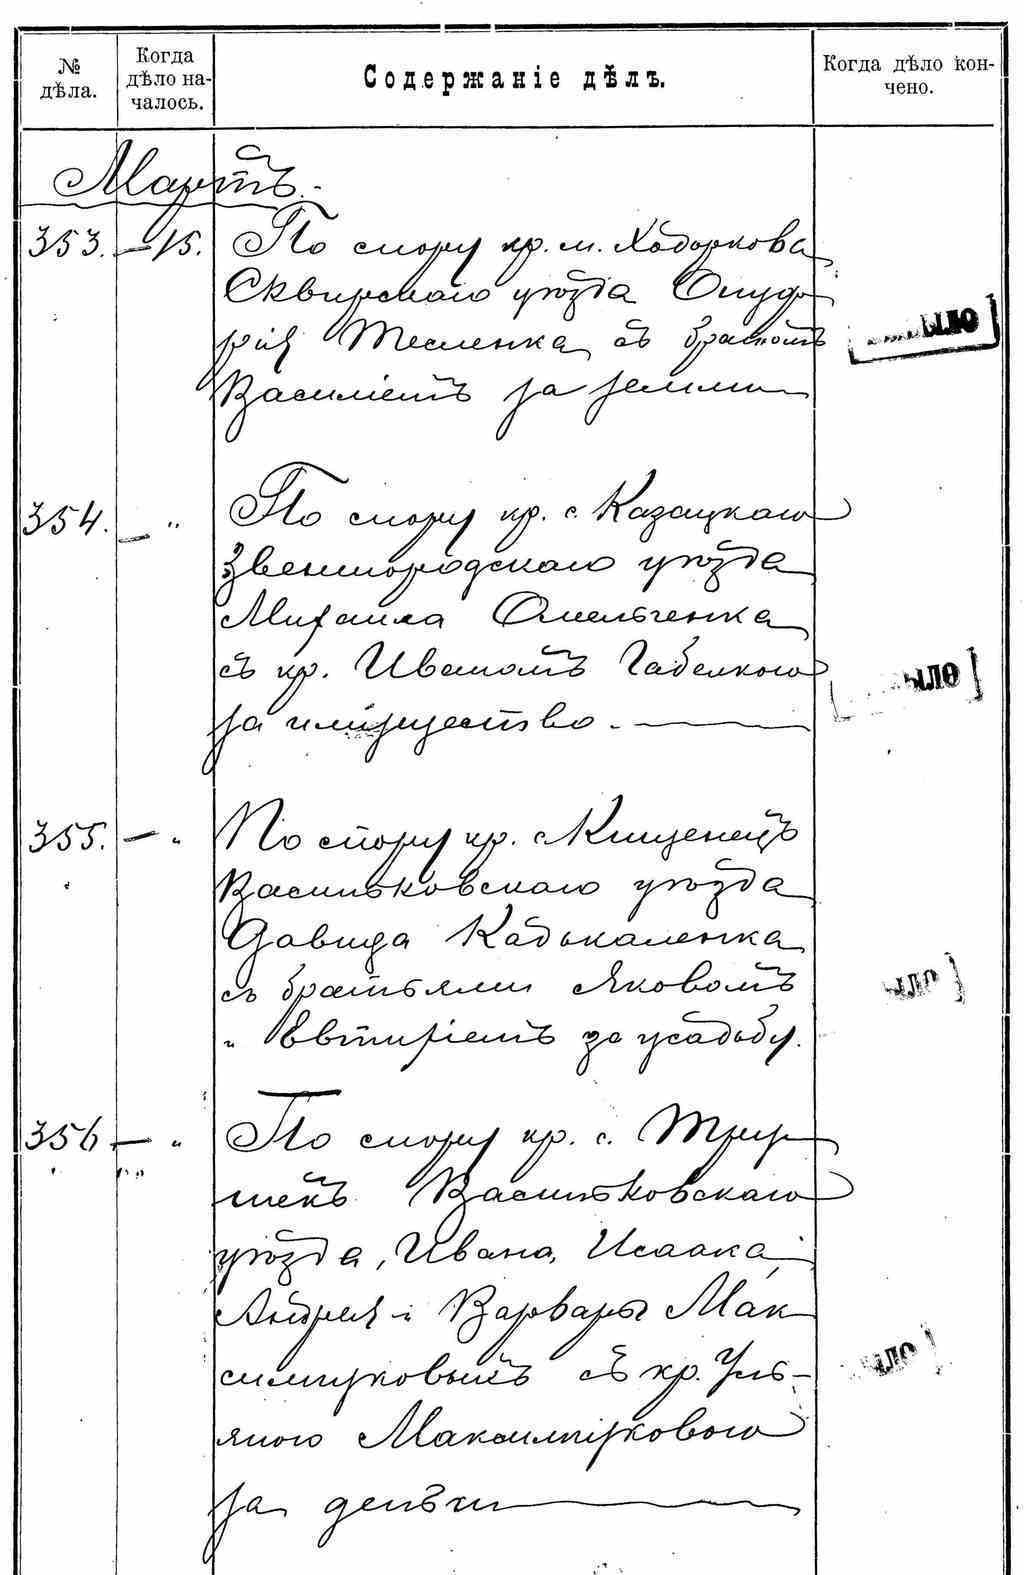 № дѣла.
Когда дѣло на-
чалось.
Содержаніе дѣлъ.
Когда дѣло кон-
чено.
Мартъ.
353. — 15. По спору кр. м. Ходоркова
Сквирскаго уѣзда Онуф-
рія Тесленка съ братомъ
Василіемъ за землю
354. — " По спору кр. с. Казацкаго
Звенигородскаго уѣзда
Михаила Омельченка
съ кр. Иваномъ Габелкою
за имущество. —
355. — " По спору кр. с. Кищенецъ
Васильковскаго уѣзда
Давида Кадькаленка
съ братьями Яковомъ
и Евтихіемъ за усадьбу.
356 — " По спору кр. с. Триу-
шекъ Васильковскаго
уѣзда, Ивана, Исаака,
Андрея и Варвары Мак-
симчуковыхъ съ кр. Уль-
яною Максимчуковою
за деньги